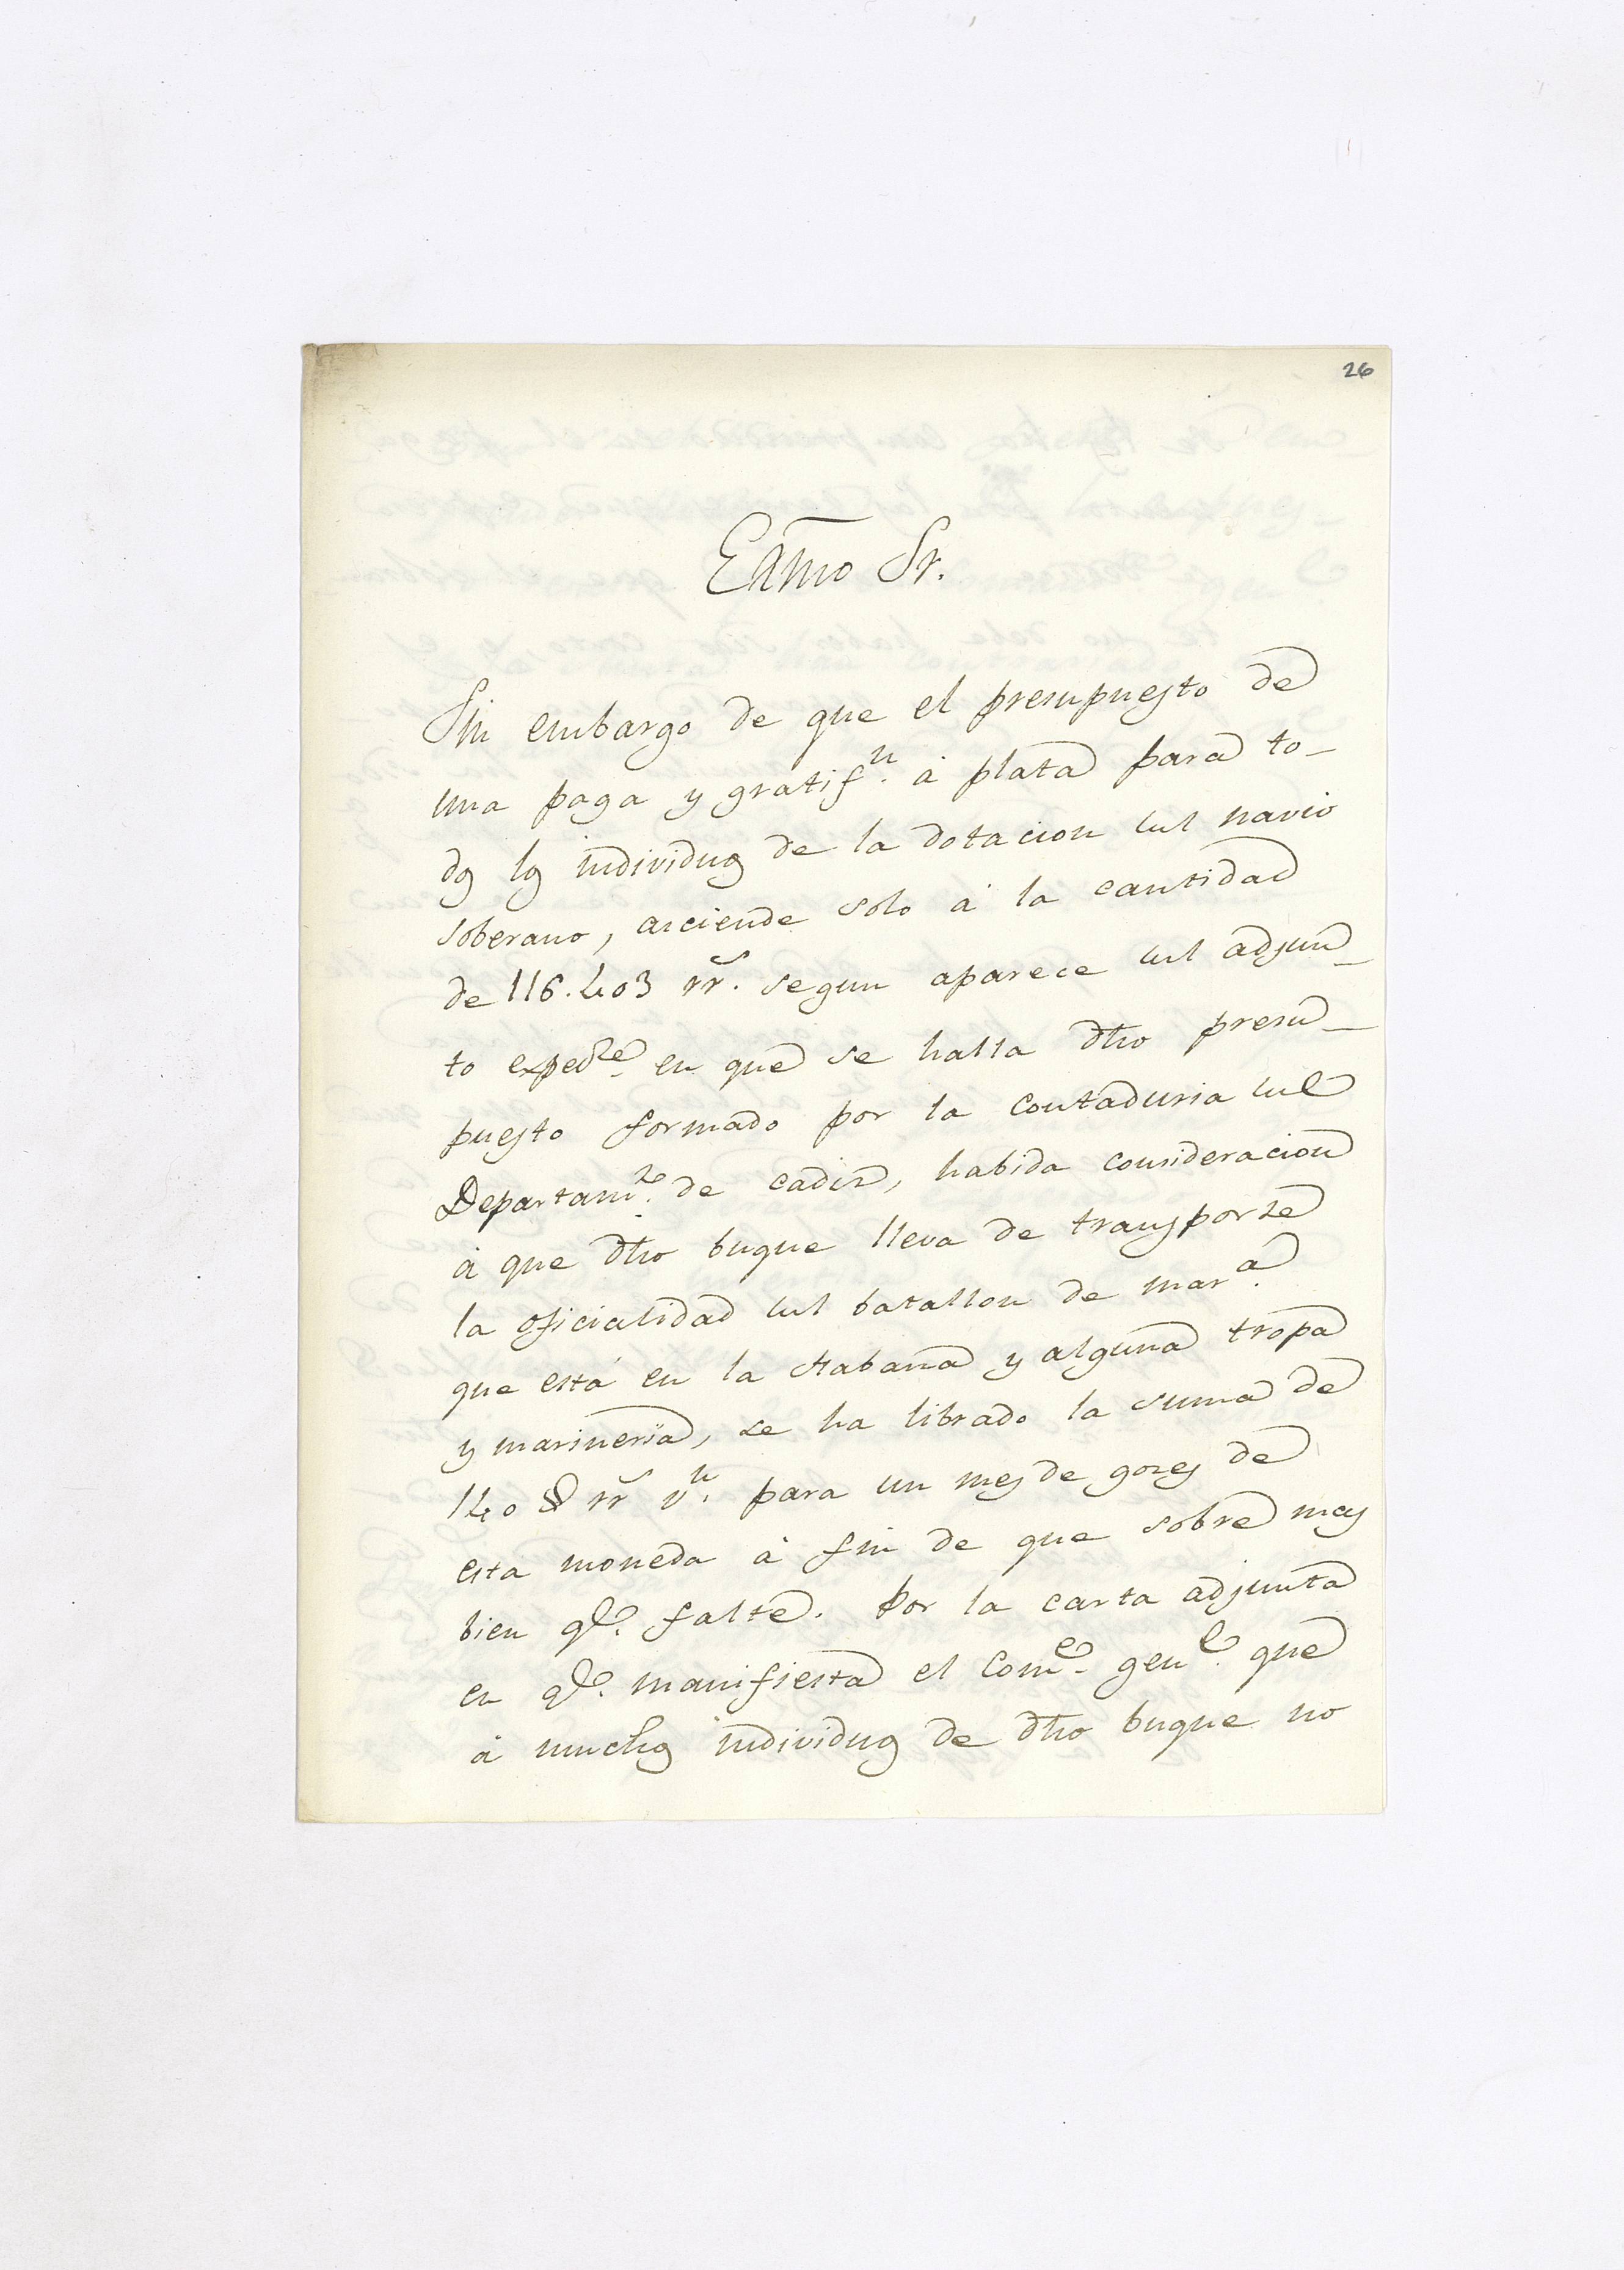 26
Exmo Sr.
Sin embargo de que el presupuesto de
una paga y gratifn. á plata para to-
dos los individuos de la dotacion del navio
soberano, asciende solo á la cantidad
de 116.403 rrs. segun aparece del adjun-
to expedte. en que se halla dho presu-
puesto formado por la contaduria del
Departamte. de cadiz, habida consideracion
á que dho buque lleva de transporte
la oficialidad del batallon de mara.
que está en la Habana y alguna tropa
y marineria, se ha librado la suma de
140 rrs vn. para un mes de gozes de
esta moneda á fin de que sobre mas
bien qe. falte. Por la carta adjunta
en qe. manifiesta el Come. genl. que
á muchos individuos de dho buque no